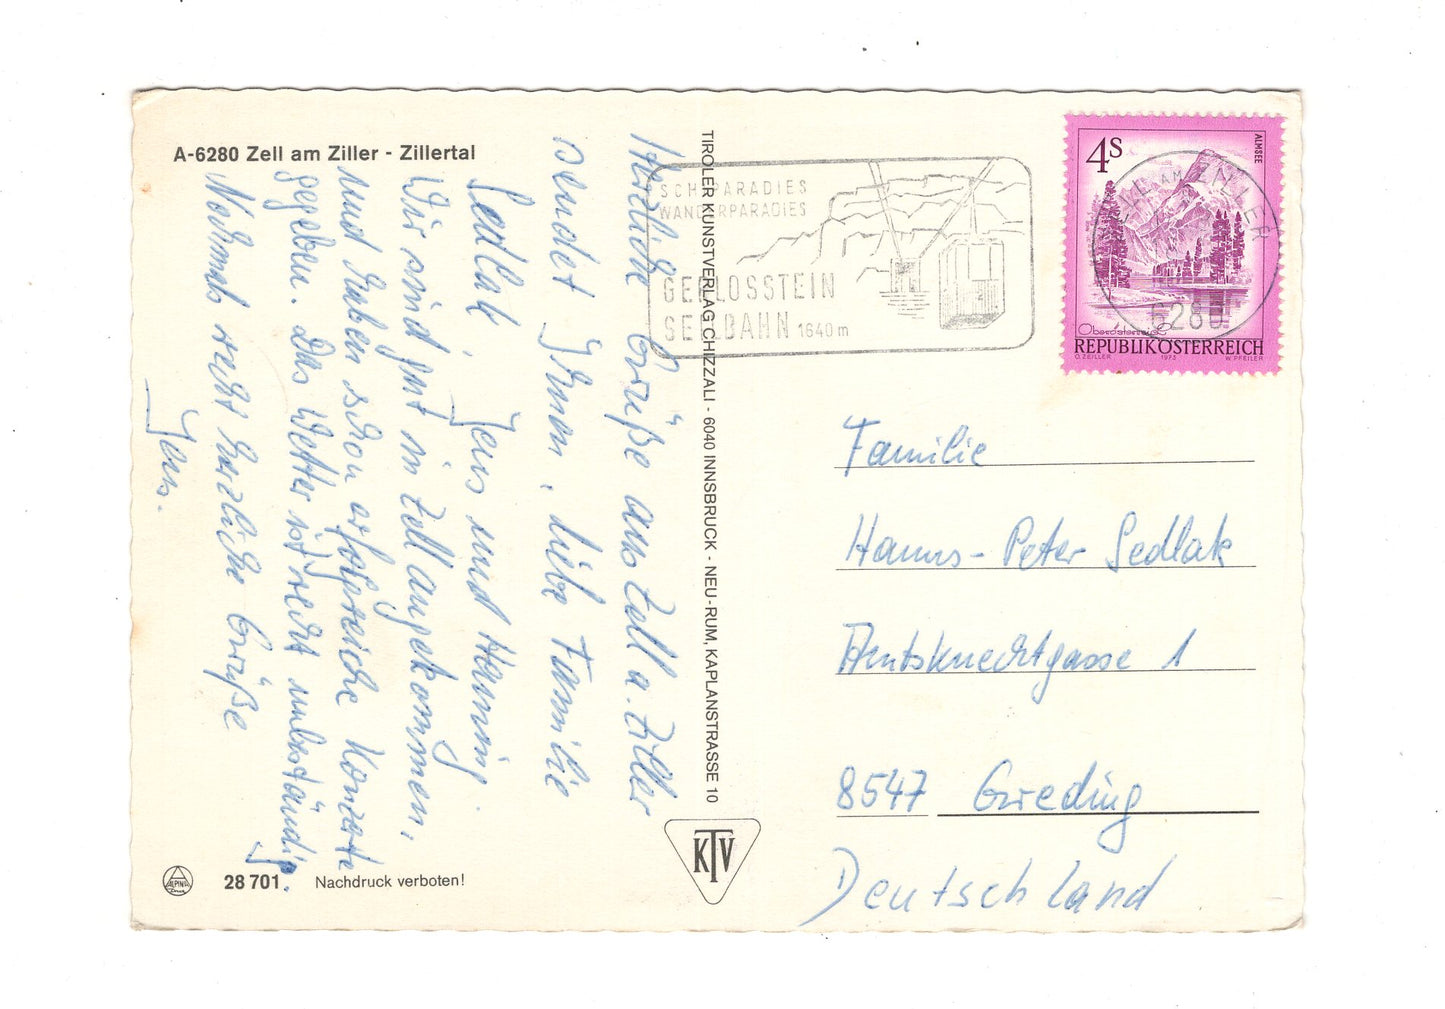 A-6280 Zell am Ziller - Zillertal
Herzliche Grüße aus Zell a. Ziller
sendet Ihnen, liebe Familie
Sedlak,
Jens und Henning.
Wir sind gut in Zell angekommen,
und haben schon erfolgreiche Konzerte
gegeben. Das Wetter ist recht unbeständig.
Nochmals recht herzliche Grüße
Jens.
28 701
Nachdruck verboten!
ALPINA
TIROLER KUNSTVERLAG CHIZZALI - 6040 INNSBRUCK - NEU-RUM, KAPLANSTRASSE 10
KTV
SCHIPARADIES
WANDERPARADIES
GERLOSSTEIN
SEILBAHN 1640m
ZELL AM ZILLER
6280
4S
ALMSEE
Oberösterreich
REPUBLIK ÖSTERREICH
O. ZEILLER 1973 W. PFEILER
Familie
Hanns-Peter Sedlak
Amtsknechtgasse 1
8547 Greding
Deutschland